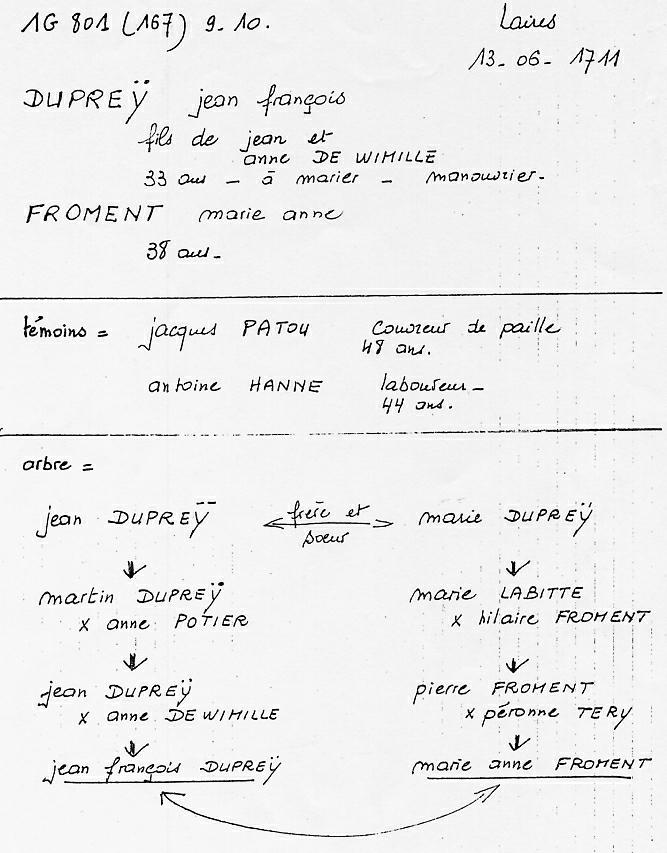 1G 801 (167) 9-10.
Laires
13-06-1711
DUPREŸ jean françois
fils de jean et
anne DE WIMILLE
33 ans - à marier - manouvrier.
FROMENT marie anne
38 ans.
témoins = jacques PATOU couvreur de paille
48 ans.
antoine HANNE laboureur -
44 ans.
arbre =
jean DUPREŸ frère et marie DUPREŸ
soeur
martin DUPREŸ marie LABITTE
x anne POTIER x hilaire FROMENT
jean DUPREŸ pierre FROMENT
x anne DE WIMILLE x péronne TERY
jean françois DUPREŸ marie anne FROMENT